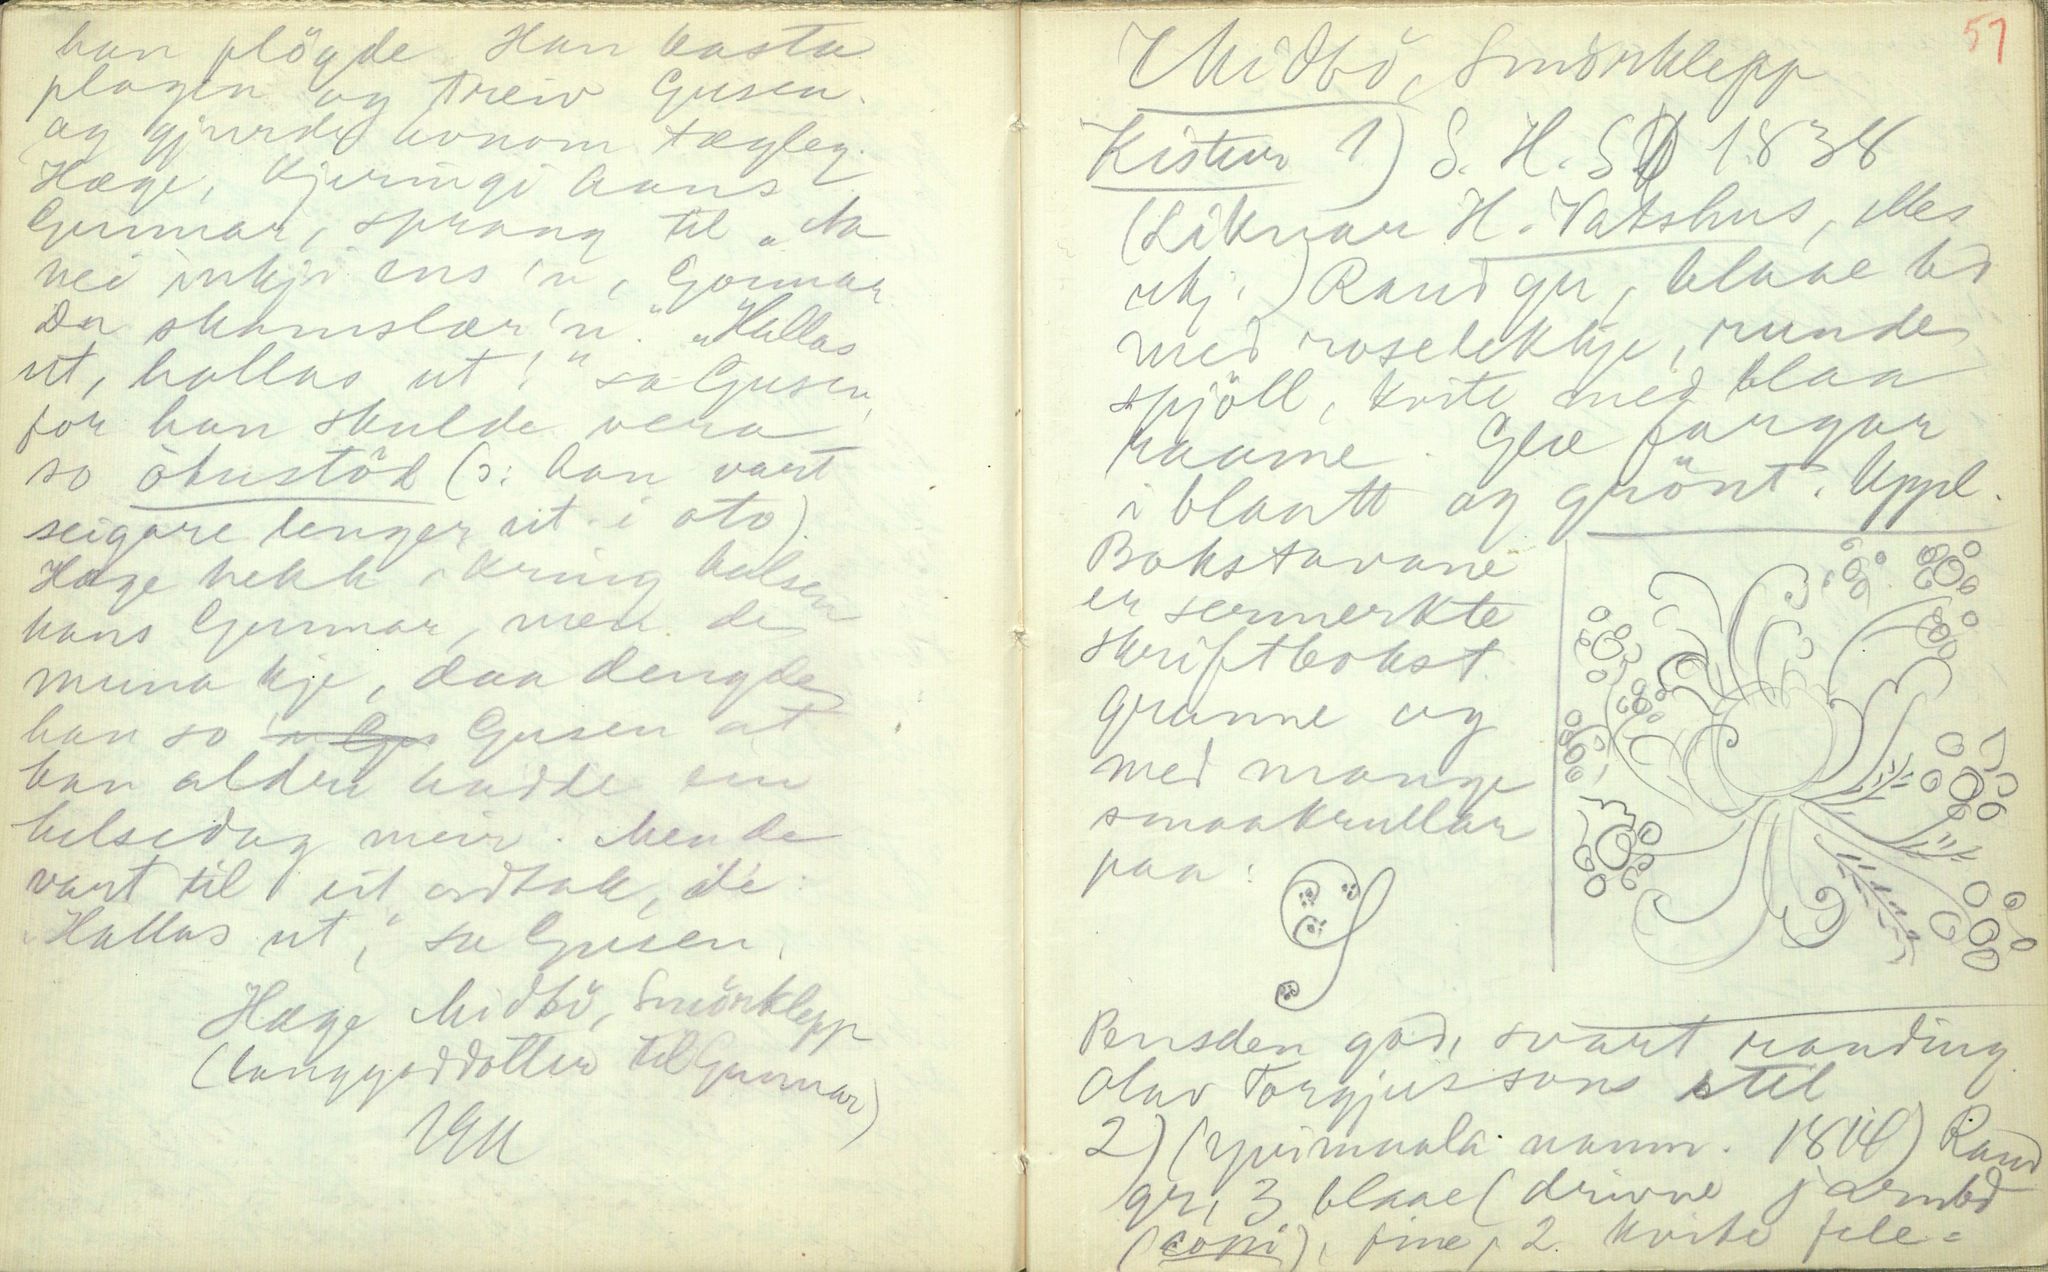 han plögde. Han kasta
plogen og treiv Gusen.
og gjorde honom tægleg.
Hæge, kjeringi hans
Gunnar, sprang til „Aa
nei inkji ens 'n, Gonnar
Du skamslær 'n." „Hallas
ut, hallas ut!" sa Gusen,
for han skulde vera
so ökustöd (ɔ: han vart
seigare lenger ut i ato).
Hæge hekk i kring halsen
hans Gunnar, men de
muna kje, daa dengde
han so Gusen at
han alder hadde ein
helsedag meir. Men de
vart til eit ordtak, de:
„Hallas ut," sa Gusen.
Hæge Midbö, Smörklepp
(langgoddotter til Gunnar)
51
Midbö, Smörklepp
Kistur 1) S. H. S 1838
(Liknar H. Vatshus, Mes
rkj.) Raud gr, blaae bd
med roselekkje, runde
spjöll, kvite med blaa
raame. Gle fargar
i blaatt og grönt. Uppl.
Bokstavane
er sermerkte
skriftbokst.
granne og
med mange
smaakrullar
paa:
S
Pensden god, svart randing.
Olav Torgjussons stil
2) (yvimaala namn. 1814) Raud
gr, 3 blaae (drivne jarnbd
(copi), fine, 2 kvite fele=